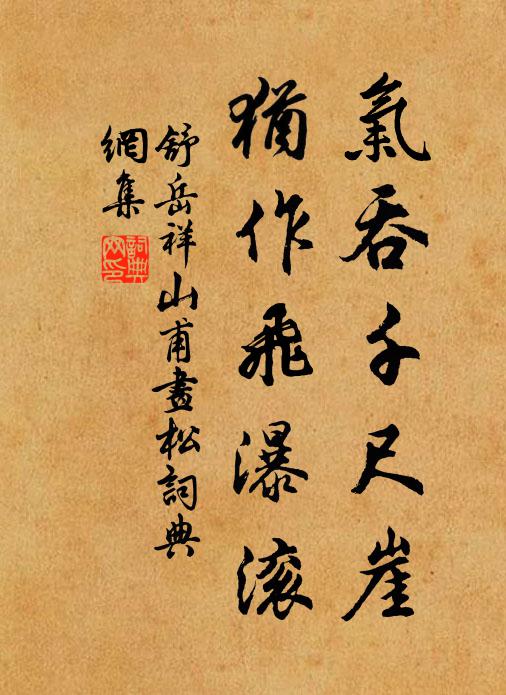 氣吞千尺崖
猶作飛瀑滾
舒岳祥山甫畫松詞典
網集
詞典
网印